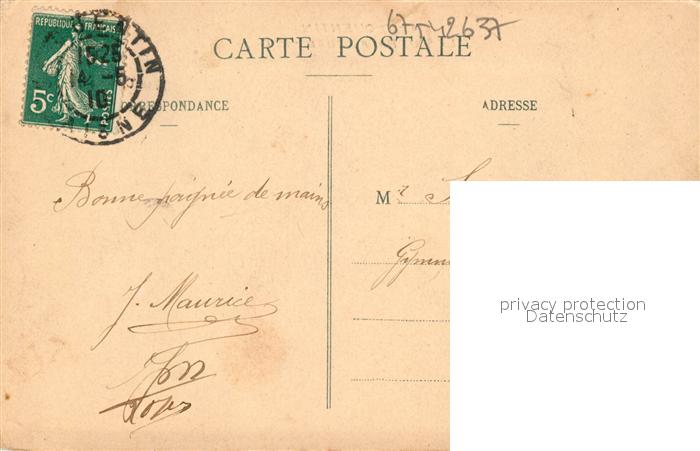 67TY2637
CARTE POSTALE
RÉPUBLIQUE FRANÇAISE
5c
POSTES
15 25
14 -5
10
CORRESPONDANCE
ADRESSE
Bonne poignée de mains
J. Maurice
Mr
privacy protection
Datenschutz